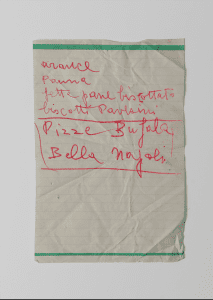 arance
Panna
fette pane biscottato
biscotti Pavesini
Pizze Bufala
Bella Napoli